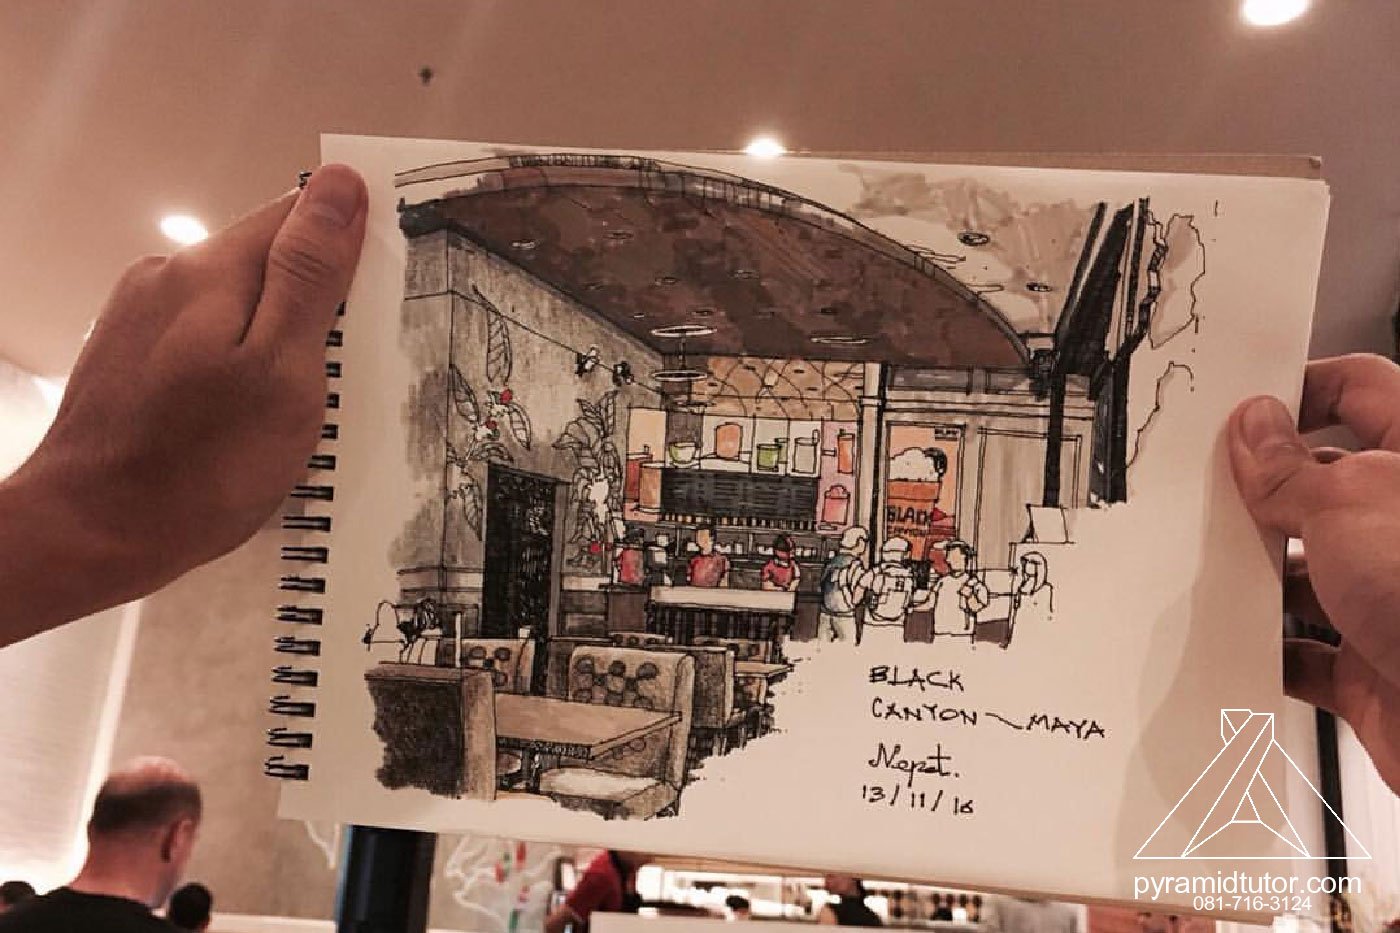 BLACK
BLACK
CANYON ~ MAYA
Nopat.
13/11/16
pyramidtutor.com
081-716-3124